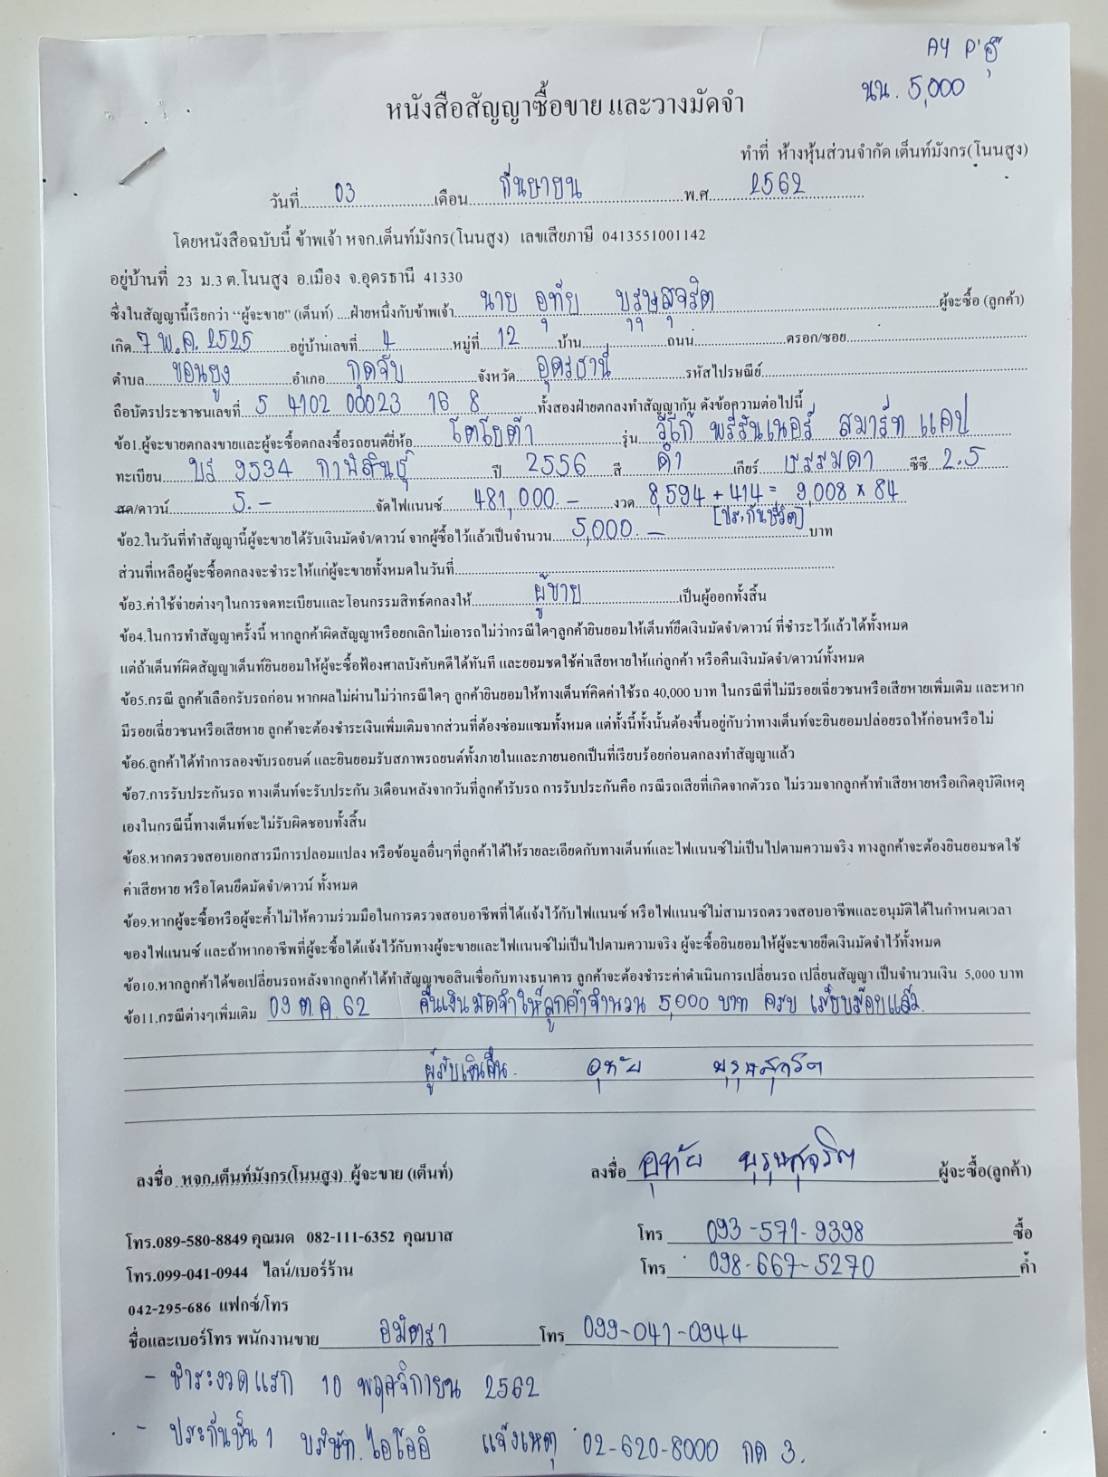 AY P'อุ๊
นน. 5,000
หนังสือสัญญาซื้อขาย และวางมัดจำ
ทำที่ ห้างหุ้นส่วนจำกัด เต็นท์มังกร(โนนสูง)
วันที่ 03 เดือน กันยายน พ.ศ. 2562
โดยหนังสือฉบับนี้ ข้าพเจ้า หจก.เต็นท์มังกร(โนนสูง) เลขเสียภาษี 0413551001142
อยู่บ้านที่ 23 ม.3 ต.โนนสูง อ.เมือง จ.อุดรธานี 41330
ซึ่งในสัญญานี้เรียกว่า "ผู้จะขาย" (เต็นท์) ....ฝ่ายหนึ่งกับข้าพเจ้า นาย อุทัย บุรุษสุจริต ผู้จะซื้อ (ลูกค้า)
เกิด 7 พ.ค. 2525 อยู่บ้านเลขที่ 4 หมู่ที่ 12 บ้าน ถนน ตรอก/ซอย
ตำบล ขอนยูง อำเภอ กุดจับ จังหวัด อุดรธานี รหัสไปรษณีย์
ถือบัตรประชาชนเลขที่ 5 4102 00023 16 8 ทั้งสองฝ่ายตกลงทำสัญญากัน ดังข้อความต่อไปนี้
ข้อ1.ผู้จะขายตกลงขายและผู้จะซื้อตกลงซื้อรถยนต์ยี่ห้อ โตโยต้า รุ่น วีโก้ พรีรันเนอร์ สมาร์ท แคป
ทะเบียน บร 9534 กาฬสินธุ์ ปี 2556 สี ดำ เกียร์ ธรรมดา ซีซี 2.5
สด/ดาวน์ 5.- จัดไฟแนนซ์ 481,000.- งวด 8,594 + 414 = 9,008 x 84
[ประกันชีวิต]
ข้อ2.ในวันที่ทำสัญญานี้ผู้จะขายได้รับเงินมัดจำ/ดาวน์ จากผู้ซื้อไว้แล้วเป็นจำนวน 5,000.- บาท
ส่วนที่เหลือผู้จะซื้อตกลงจะชำระให้แก่ผู้จะขายทั้งหมดในวันที่
ข้อ3.ค่าใช้จ่ายต่างๆในการจดทะเบียนและโอนกรรมสิทธ์ตกลงให้ ผู้ขาย เป็นผู้ออกทั้งสิ้น
ข้อ4.ในการทำสัญญาครั้งนี้ หากลูกค้าผิดสัญญาหรือยกเลิกไม่เอารถไม่ว่ากรณีใดๆลูกค้ายินยอมให้เต็นท์ยึดเงินมัดจำ/ดาวน์ ที่ชำระไว้แล้วได้ทั้งหมด
แต่ถ้าเต็นท์ผิดสัญญาเต็นท์ยินยอมให้ผู้จะซื้อฟ้องศาลบังคับคดีได้ทันที และยอมชดใช้ค่าเสียหายให้แก่ลูกค้า หรือคืนเงินมัดจำ/ดาวน์ทั้งหมด
ข้อ5.กรณี ลูกค้าเลือกรับรถก่อน หากผลไม่ผ่านไม่ว่ากรณีใดๆ ลูกค้ายินยอมให้ทางเต็นท์คิดค่าใช้รถ 40,000 บาท ในกรณีที่ไม่มีรอยเฉี่ยวชนหรือเสียหายเพิ่มเติม และหาก
มีรอยเฉี่ยวชนหรือเสียหาย ลูกค้าจะต้องชำระเงินเพิ่มเติมจากส่วนที่ต้องซ่อมแซมทั้งหมด แต่ทั้งนี้ทั้งนั้นต้องขึ้นอยู่กับว่าทางเต็นท์จะยินยอมปล่อยรถให้ก่อนหรือไม่
ข้อ6.ลูกค้าได้ทำการลองขับรถยนต์ และยินยอมรับสภาพรถยนต์ทั้งภายในและภายนอกเป็นที่เรียบร้อยก่อนตกลงทำสัญญาแล้ว
ข้อ7.การรับประกันรถ ทางเต็นท์จะรับประกัน 3เดือนหลังจากวันที่ลูกค้ารับรถ การรับประกันคือ กรณีรถเสียที่เกิดจากตัวรถ ไม่รวมจากลูกค้าทำเสียหายหรือเกิดอุบัติเหตุ
เองในกรณีนี้ทางเต็นท์จะไม่รับผิดชอบทั้งสิ้น
ข้อ8.หากตรวจสอบเอกสารมีการปลอมแปลง หรือข้อมูลอื่นๆที่ลูกค้าได้ให้รายละเอียดกับทางเต็นท์และไฟแนนซ์ไม่เป็นไปตามความจริง ทางลูกค้าจะต้องยินยอมชดใช้
ค่าเสียหาย หรือโดนยึดมัดจำ/ดาวน์ ทั้งหมด
ข้อ9.หากผู้จะซื้อหรือผู้จะค้ำไม่ให้ความร่วมมือในการตรวจสอบอาชีพที่ได้แจ้งไว้กับไฟแนนซ์ หรือไฟแนนซ์ไม่สามารถตรวจสอบอาชีพและอนุมัติได้ในกำหนดเวลา
ของไฟแนนซ์ และถ้าหากอาชีพที่ผู้จะซื้อได้แจ้งไว้กับทางผู้จะขายและไฟแนนซ์ไม่เป็นไปตามความจริง ผู้จะซื้อยินยอมให้ผู้จะขายยึดเงินมัดจำไว้ทั้งหมด
ข้อ10.หากลูกค้าได้ขอเปลี่ยนรถหลังจากลูกค้าได้ทำสัญญาขอสินเชื่อกับทางธนาคาร ลูกค้าจะต้องชำระค่าดำเนินการเปลี่ยนรถ เปลี่ยนสัญญา เป็นจำนวนเงิน 5,000 บาท
ข้อ11.กรณีต่างๆเพิ่มเติม 09 ต.ค. 62 คืนเงินมัดจำให้ลูกค้าจำนวน 5,000 บาท ครบ เรียบร้อยแล้ว.
ผู้รับเงินคืน. อุทัย บุรุษสุจริต
ลงชื่อ หจก.เต็นท์มังกร(โนนสูง) ผู้จะขาย (เต็นท์) ลงชื่อ อุทัย บุรุษสุจริต ผู้จะซื้อ(ลูกค้า)
โทร.089-580-8849 คุณมด 082-111-6352 คุณบาส โทร 093-571-9398 ซื้อ
โทร.099-041-0944 ไลน์/เบอร์ร้าน โทร 098-667-5270 ค้ำ
042-295-686 แฟกซ์/โทร
ชื่อและเบอร์โทร พนักงานขาย อมิตรา โทร 099-041-0944
- ชำระงวดแรก 10 พฤศจิกายน 2562
- ประกันชั้น 1 บริษัท.ไอโออิ แจ้งเหตุ 02-620-8000 กด 3.